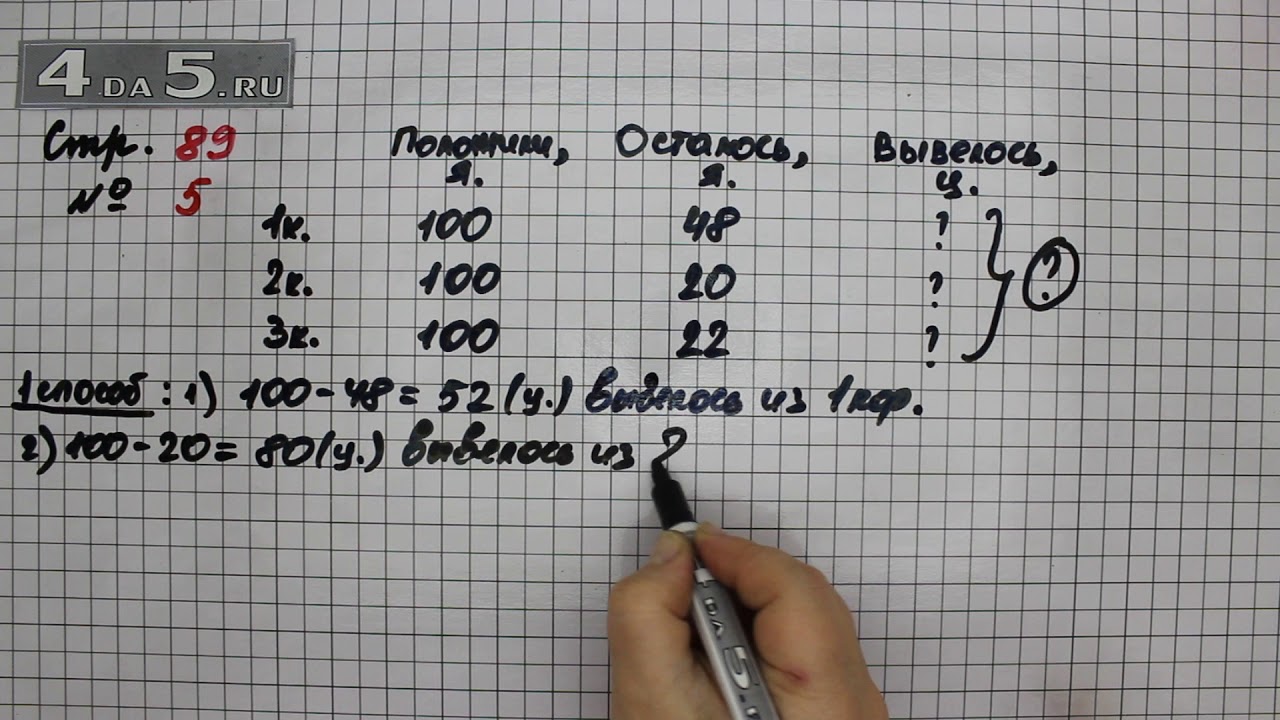 4 DA 5.RU
Стр. 89
№ 5
Положили, я. Осталось, я. Вывелось, ц.
1к. 100 48 ?
2к. 100 20 ? ?
3к. 100 22 ?
1 способ: 1) 100 - 48 = 52 (ц.) вывелось из 1 кор.
2) 100 - 20 = 80 (ц.) вывелось из 2
DA 5.